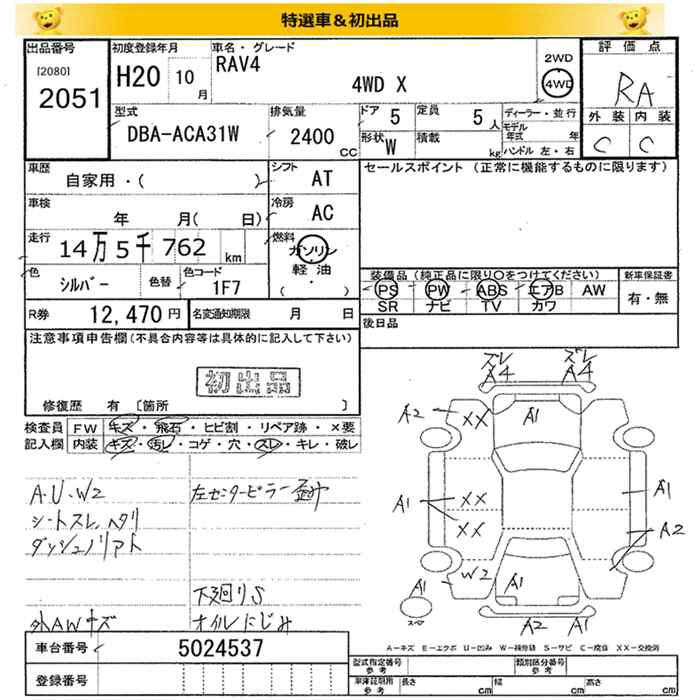 特選車＆初出品
出品番号
[2080]
2051
初度登録年月
H20 10月
車名・グレード
RAV4
4WD X
2WD
4WD
評価点
RA
外装 内装
C C
型式
DBA-ACA31W
排気量
2400
CC
ドア 5
定員 5人
形状 W
積載 kg
ディーラー・並行
モデル年式 年
ハンドル 左・右
車歴
自家用・( )
シフト
AT
セールスポイント (正常に機能するものに限ります)
車検
年 月( 日)
冷房
AC
走行
14万5千762 km
燃料
ガソリン
軽油
(・)
色
シルバー
色替
色コード
1F7
装備品(純正品に限り○をつけてください)
PS PW ABS エアB AW
SR ナビ TV カワ
新車保証書
有・無
R券 12,470円
名変通知期限 月 日
後日品
注意事項申告欄(不具合内容等は具体的に記入して下さい)
初出品
修復歴 有 [箇所 ]
検査員記入欄
FW キズ・飛石・ヒビ割・リペア跡・×要
内装 キズ・汚レ・コゲ・穴・スレ・キレ・破レ
A・U・W2
シートスレ、ヘタリ
ダッシュノリアト
外AWキズ
左センターピラー歪ヤ
下廻りS
オイルにじみ
ズレ ズレ
A4 A4
A2 XX A1
A1 XX XX A1
A2
W2 A1
A1
スペア
A2 A1
A-キズ E-エクボ U-凹み W-補修跡 S-サビ C-腐食 XX-交換済
車台番号
5024537
登録番号
型式指定番号
参考
類別区分番号
参考
車庫証明用
参考
長さ cm
幅 cm
高さ cm